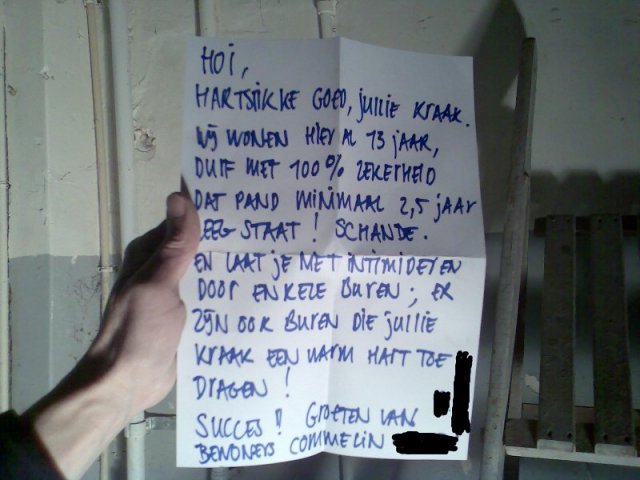 HOI,
HARTSTIKKE GOED, JULLIE KRAAK.
WIJ WONEN HIER AL 13 JAAR,
DURF MET 100% ZEKERHEID
DAT PAND MINIMAAL 2,5 JAAR
LEEG STAAT! SCHANDE.
EN LAAT JE NIET INTIMIDEREN
DOOR ENKELE BUREN; ER
ZIJN OOK BUREN DIE JULLIE
KRAAK EEN WARM HART TOE
DRAGEN!
SUCCES! GROETEN VAN
BEWONERS COMMELIN